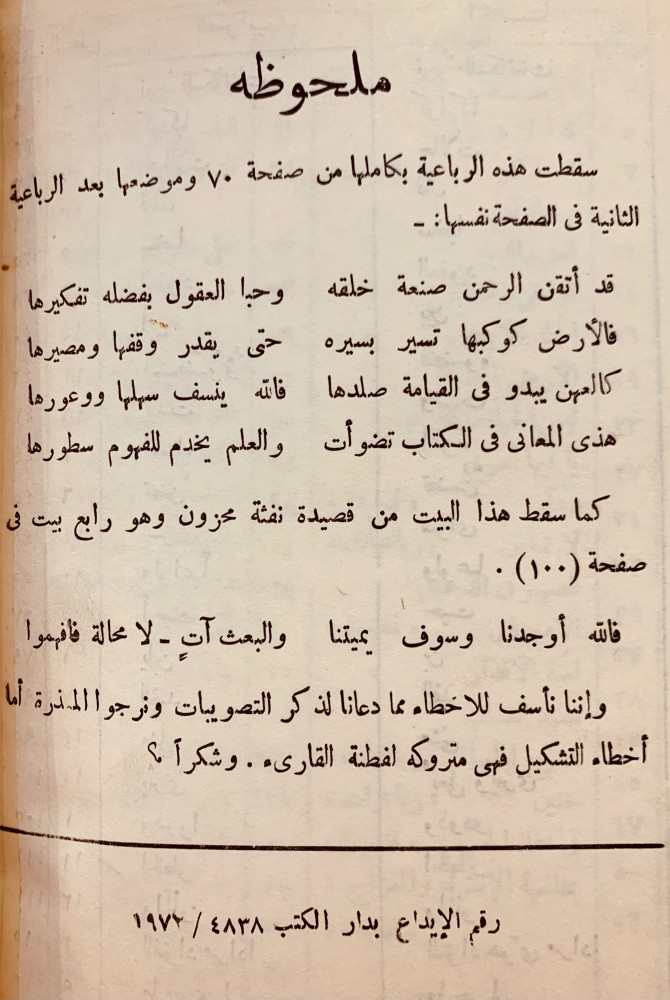 ملحوظه
سقطت هذه الرباعية بكاملها من صفحة ٧٠ وموضعها بعد الرباعية
الثانية فى الصفحة نفسها : ـ
قد أتقن الرحمن صنعة خلقه وحبا العقول بفضله تفكيرها
فالأرض كوكبها تسير بسيره حتى يقدر وقفها ومصيرها
كالعهن يبدو فى القيامة صلدها فالله ينسف سهلها ووعورها
هذى المعانى فى الكتاب تضوأت والعلم يخدم للفهوم سطورها
كما سقط هذا البيت من قصيدة نفثة محزون وهو رابع بيت فى
صفحة (١٠٠) .
فالله أوجدنا وسوف يميتنا والبعث آتٍ ـ لا محالة فافهموا
وإننا نأسف للاخطاء مما دعانا لذكر التصويبات ونرجوا المعذرة أما
أخطاء التشكيل فهى متروكه لفطنة القارىء . وشكراً ؟
رقم الإيداع بدار الكتب ٤٨٣٨ / ١٩٧٢